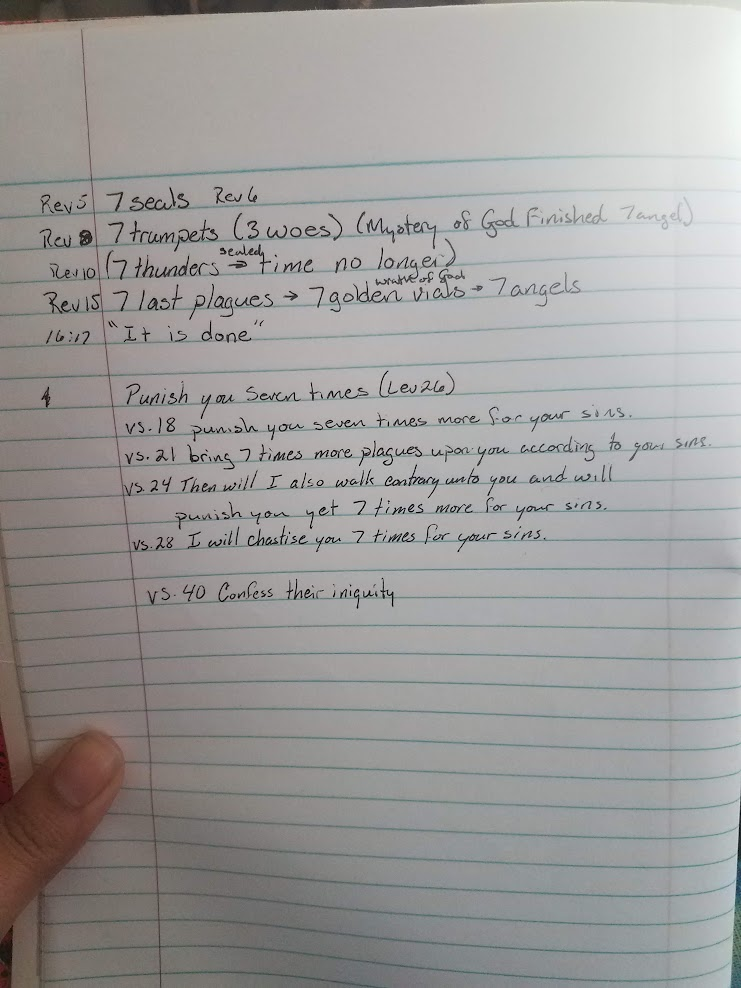 Rev 5 7 seals Rev 6
Rev 8 7 trumpets (3 woes) (Mystery of God Finished 7 angel)
sealed
Rev 10 (7 thunders → time no longer)
wrath of God
Rev 15 7 last plagues → 7 golden vials → 7 angels
16:17 "It is done"
Punish you Seven times (Lev 26)
vs. 18 punish you seven times more for your sins.
vs. 21 bring 7 times more plagues upon you according to your sins.
vs. 24 Then will I also walk contrary unto you and will
punish you yet 7 times more for your sins.
vs. 28 I will chastise you 7 times for your sins.
vs. 40 Confess their iniquity